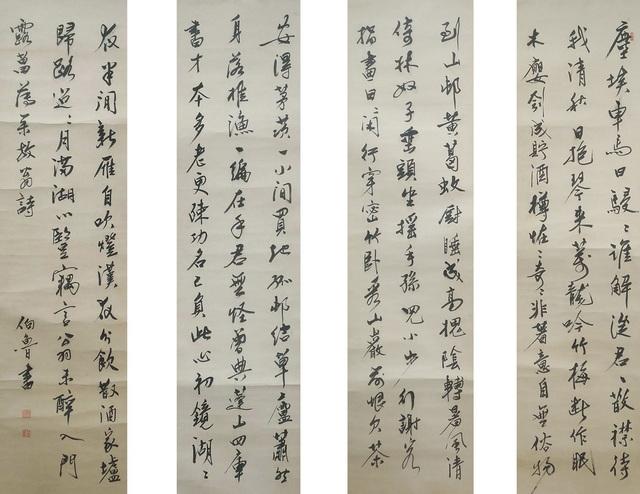 塵埃車馬日駸〻誰解從君一散襟待
我清秋日抱琴来萬龍吟竹梅
木癭刳成貯酒樽恠〻奇〻非著意自無俗物
到山邨黄葛蚊廚睡成高槐陰轉暑風清
侍林奴子垂頭坐搔手孫兒小步行謝客
指畫日〻閑行穿密竹卧看山巖前恨欠茶
安得茅茨一小間買地孤邨結草廬蕭然
身落樵漁一編在手君無怪曾典蓬山四庫
書才本多老更疎功名已負此心初鏡湖〻
夜半聞新雁自吹燈漢夜公飲散酒家壚
歸路迢〻月滿湖小豎竊言翁未醉入門
露菊
放翁詩
伯魯書